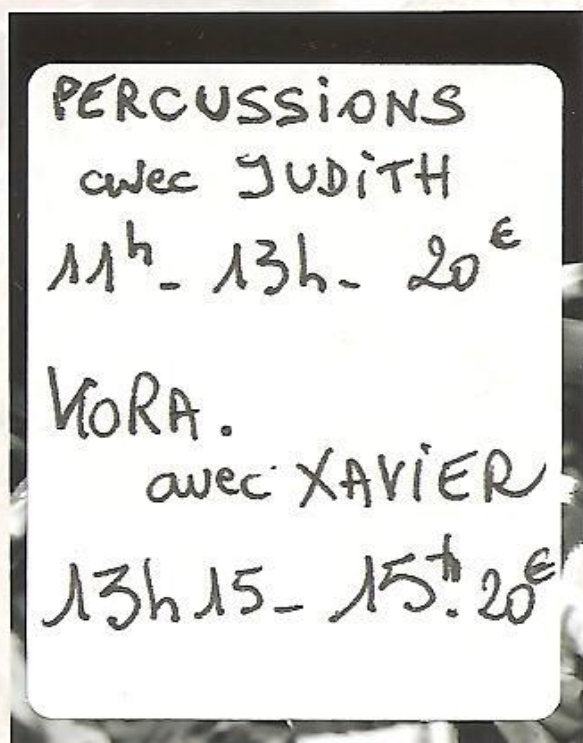 PERCUSSiONS
avec JUDiTH
11h - 13h - 20€
KORA.
avec XAViER
13h15 - 15h. 20€